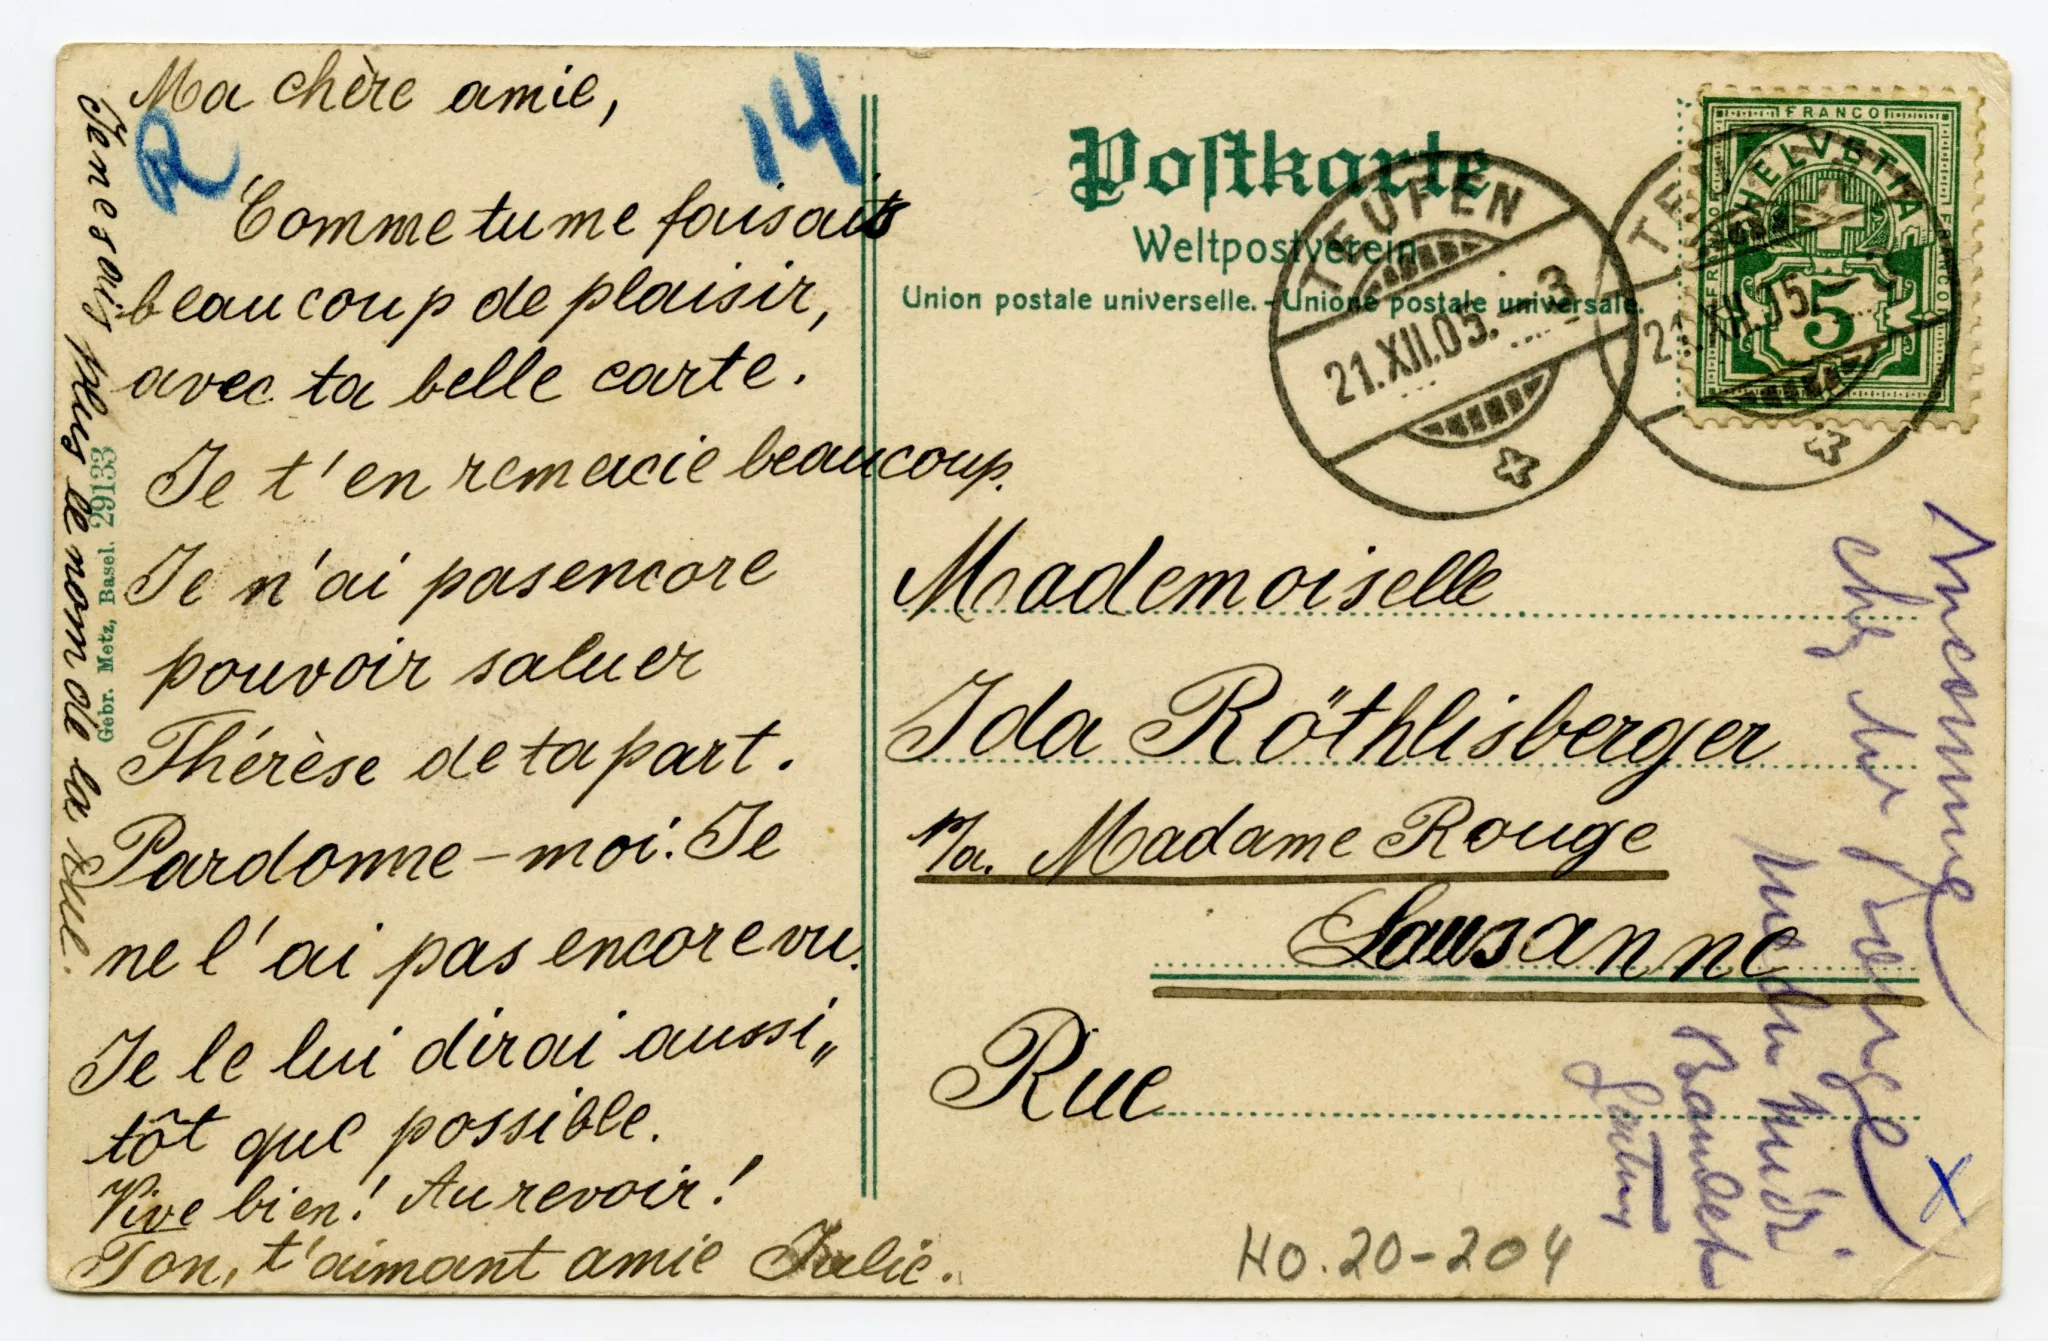 Ma chère amie,
R
14
Comme tu me faisais
beaucoup de plaisir,
avec ta belle carte.
Je t'en remercie beaucoup.
Je n'ai pas encore
pouvoir saluer
Thérèse de ta part.
Pardonne-moi. Je
ne l'ai pas encore vu.
Je le lui dirai aussi„
tôt que possible.
Vive bien! Au revoir!
Ton, t'aimant amie Julie.
Je ne sais plus le nom de la rue.
Gebr. Metz, Basel. 29133
Postkarte
Weltpostverein
Union postale universelle. - Unione postale universale.
TEUFEN
21.XII.05. 3
TEUFEN
21.XII.05
FRANCO
HELVETIA
FRANCO
FRANCO
5
Mademoiselle
Ida Röthlisberger
p/a. Madame Rouge
Lausanne
Rue
Inconnue
chez
Rouge
rue du Midi
X
HO.20-204